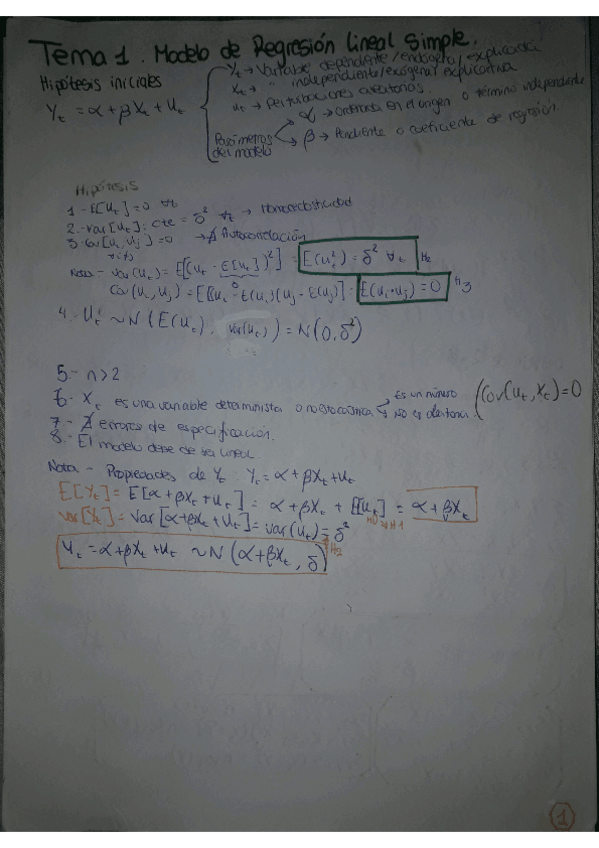 Tema 1. Modelo de Regresión Lineal Simple.
Hipótesis iniciales
Yt = α + βXt + Ut
Yt → Variable dependiente/endógena/explicada
Xt → " independiente/exógena/explicativa
ut → Perturbaciones aleatorias.
Parámetros del modelo
α → Ordenada en el origen o término independiente
β → Pendiente o coeficiente de regresión.
Hipótesis
1.- E[Ut] = 0 ∀t
2.- Var[Ut] = cte = δ² ∀t → Homocedasticidad
3.- Cov[Ui, Uj] = 0 → ∄ Autocorrelación
∀i≠j
Nota - Var(Ut) = E[(Ut - E[Ut])²] = E(Ut²) = δ² ∀t H2
0
Cov(Ui, Uj) = E[(Ui - E(Ui)(Uj - E(Uj)] = E(Ui·Uj) = 0 H3
4.- Ut ~ N(E(Ut), Var(Ut)) = N(0, δ²)
5.- n > 2
6.- Xt es una variable determinista o no estocástica
Es un número
No es aleatoria
(Cov(Ut, Xt) = 0
7.- ∄ errores de especificación.
8.- El modelo debe de ser lineal.
Nota - Propiedades de Yt: Yt = α + βXt + Ut
E[Yt] = E[α + βXt + Ut] = α + βXt + E[Ut] = α + βXt
Var[Yt] = Var[α + βXt + Ut] = Var(Ut) = δ²
H1
H2
Yt = α + βXt + Ut ~ N(α + βXt, δ)
1